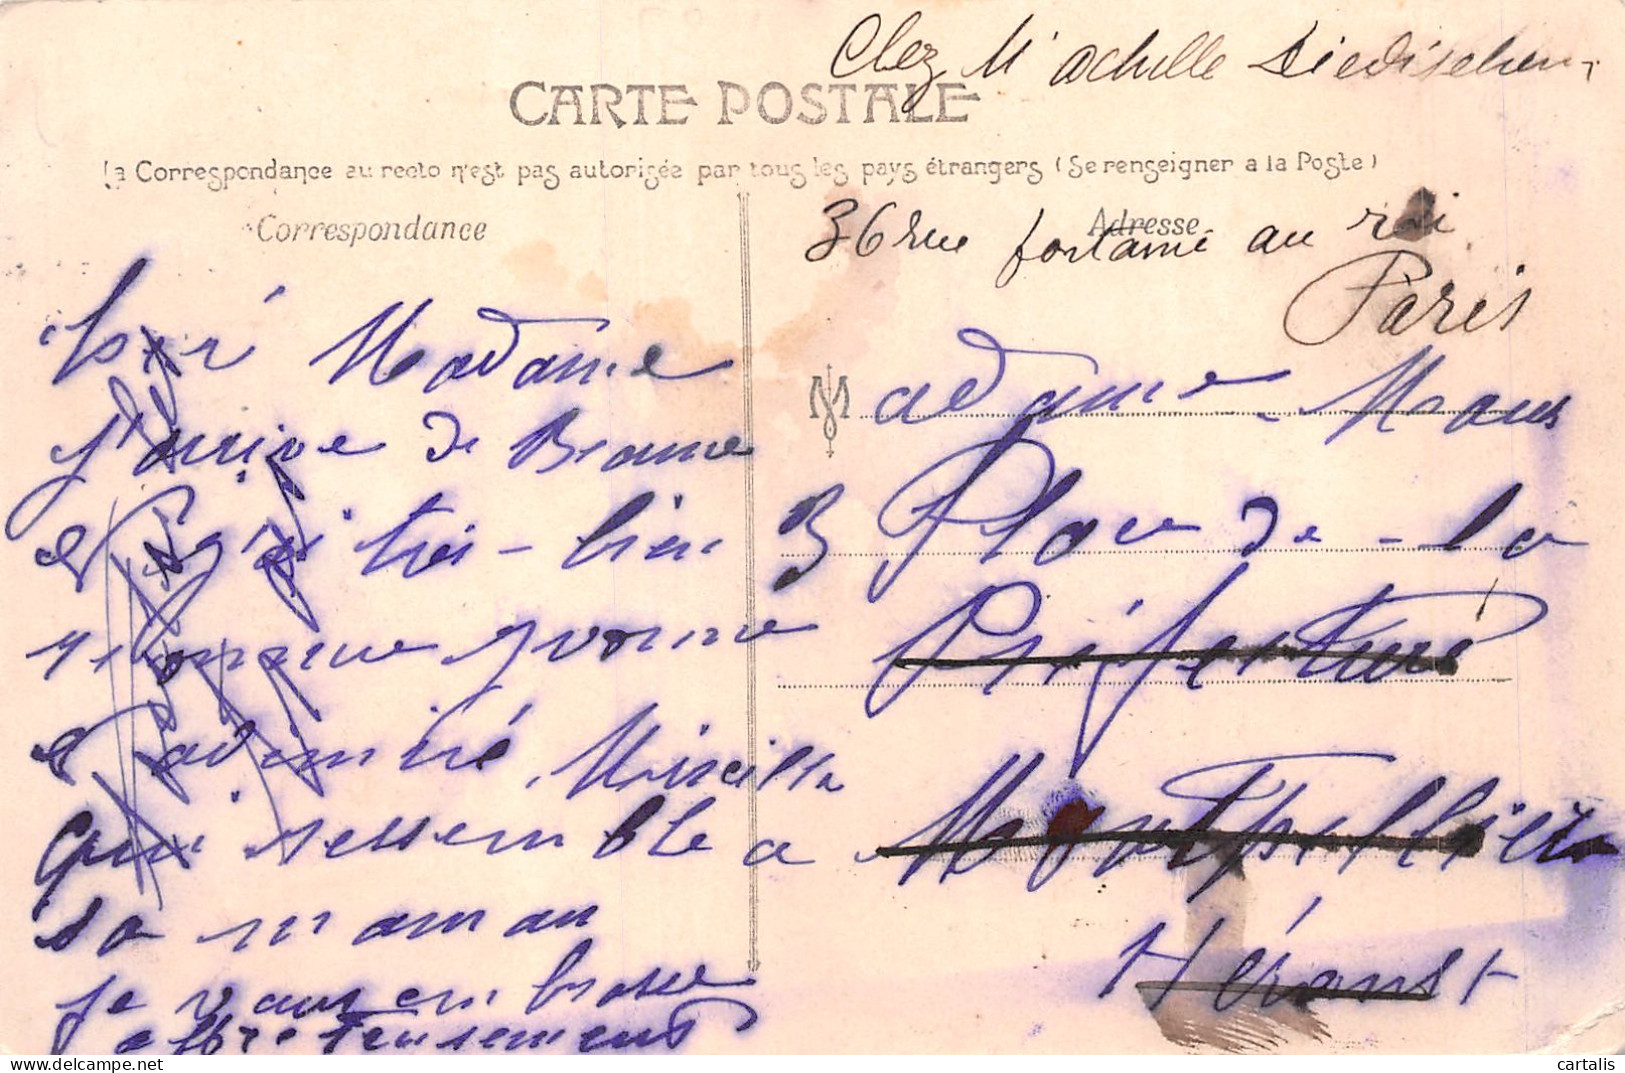 Chez Mr Achille
CARTE POSTALE
La Correspondance au recto n'est pas autorisée par tous les pays étrangers (Se renseigner a la Poste)
Correspondance
Adresse
36 rue fontaine au roi
Paris
Cheré Madame
j'arrive de Beaune
et j'ai très-bien
Yvonne
et admiré Mireille
qui ressemble a
sa maman
je vous embrasse
affectueusement
Madame Maus
3 Place de la
Préfecture
Montpellier
Hérault
cartalis